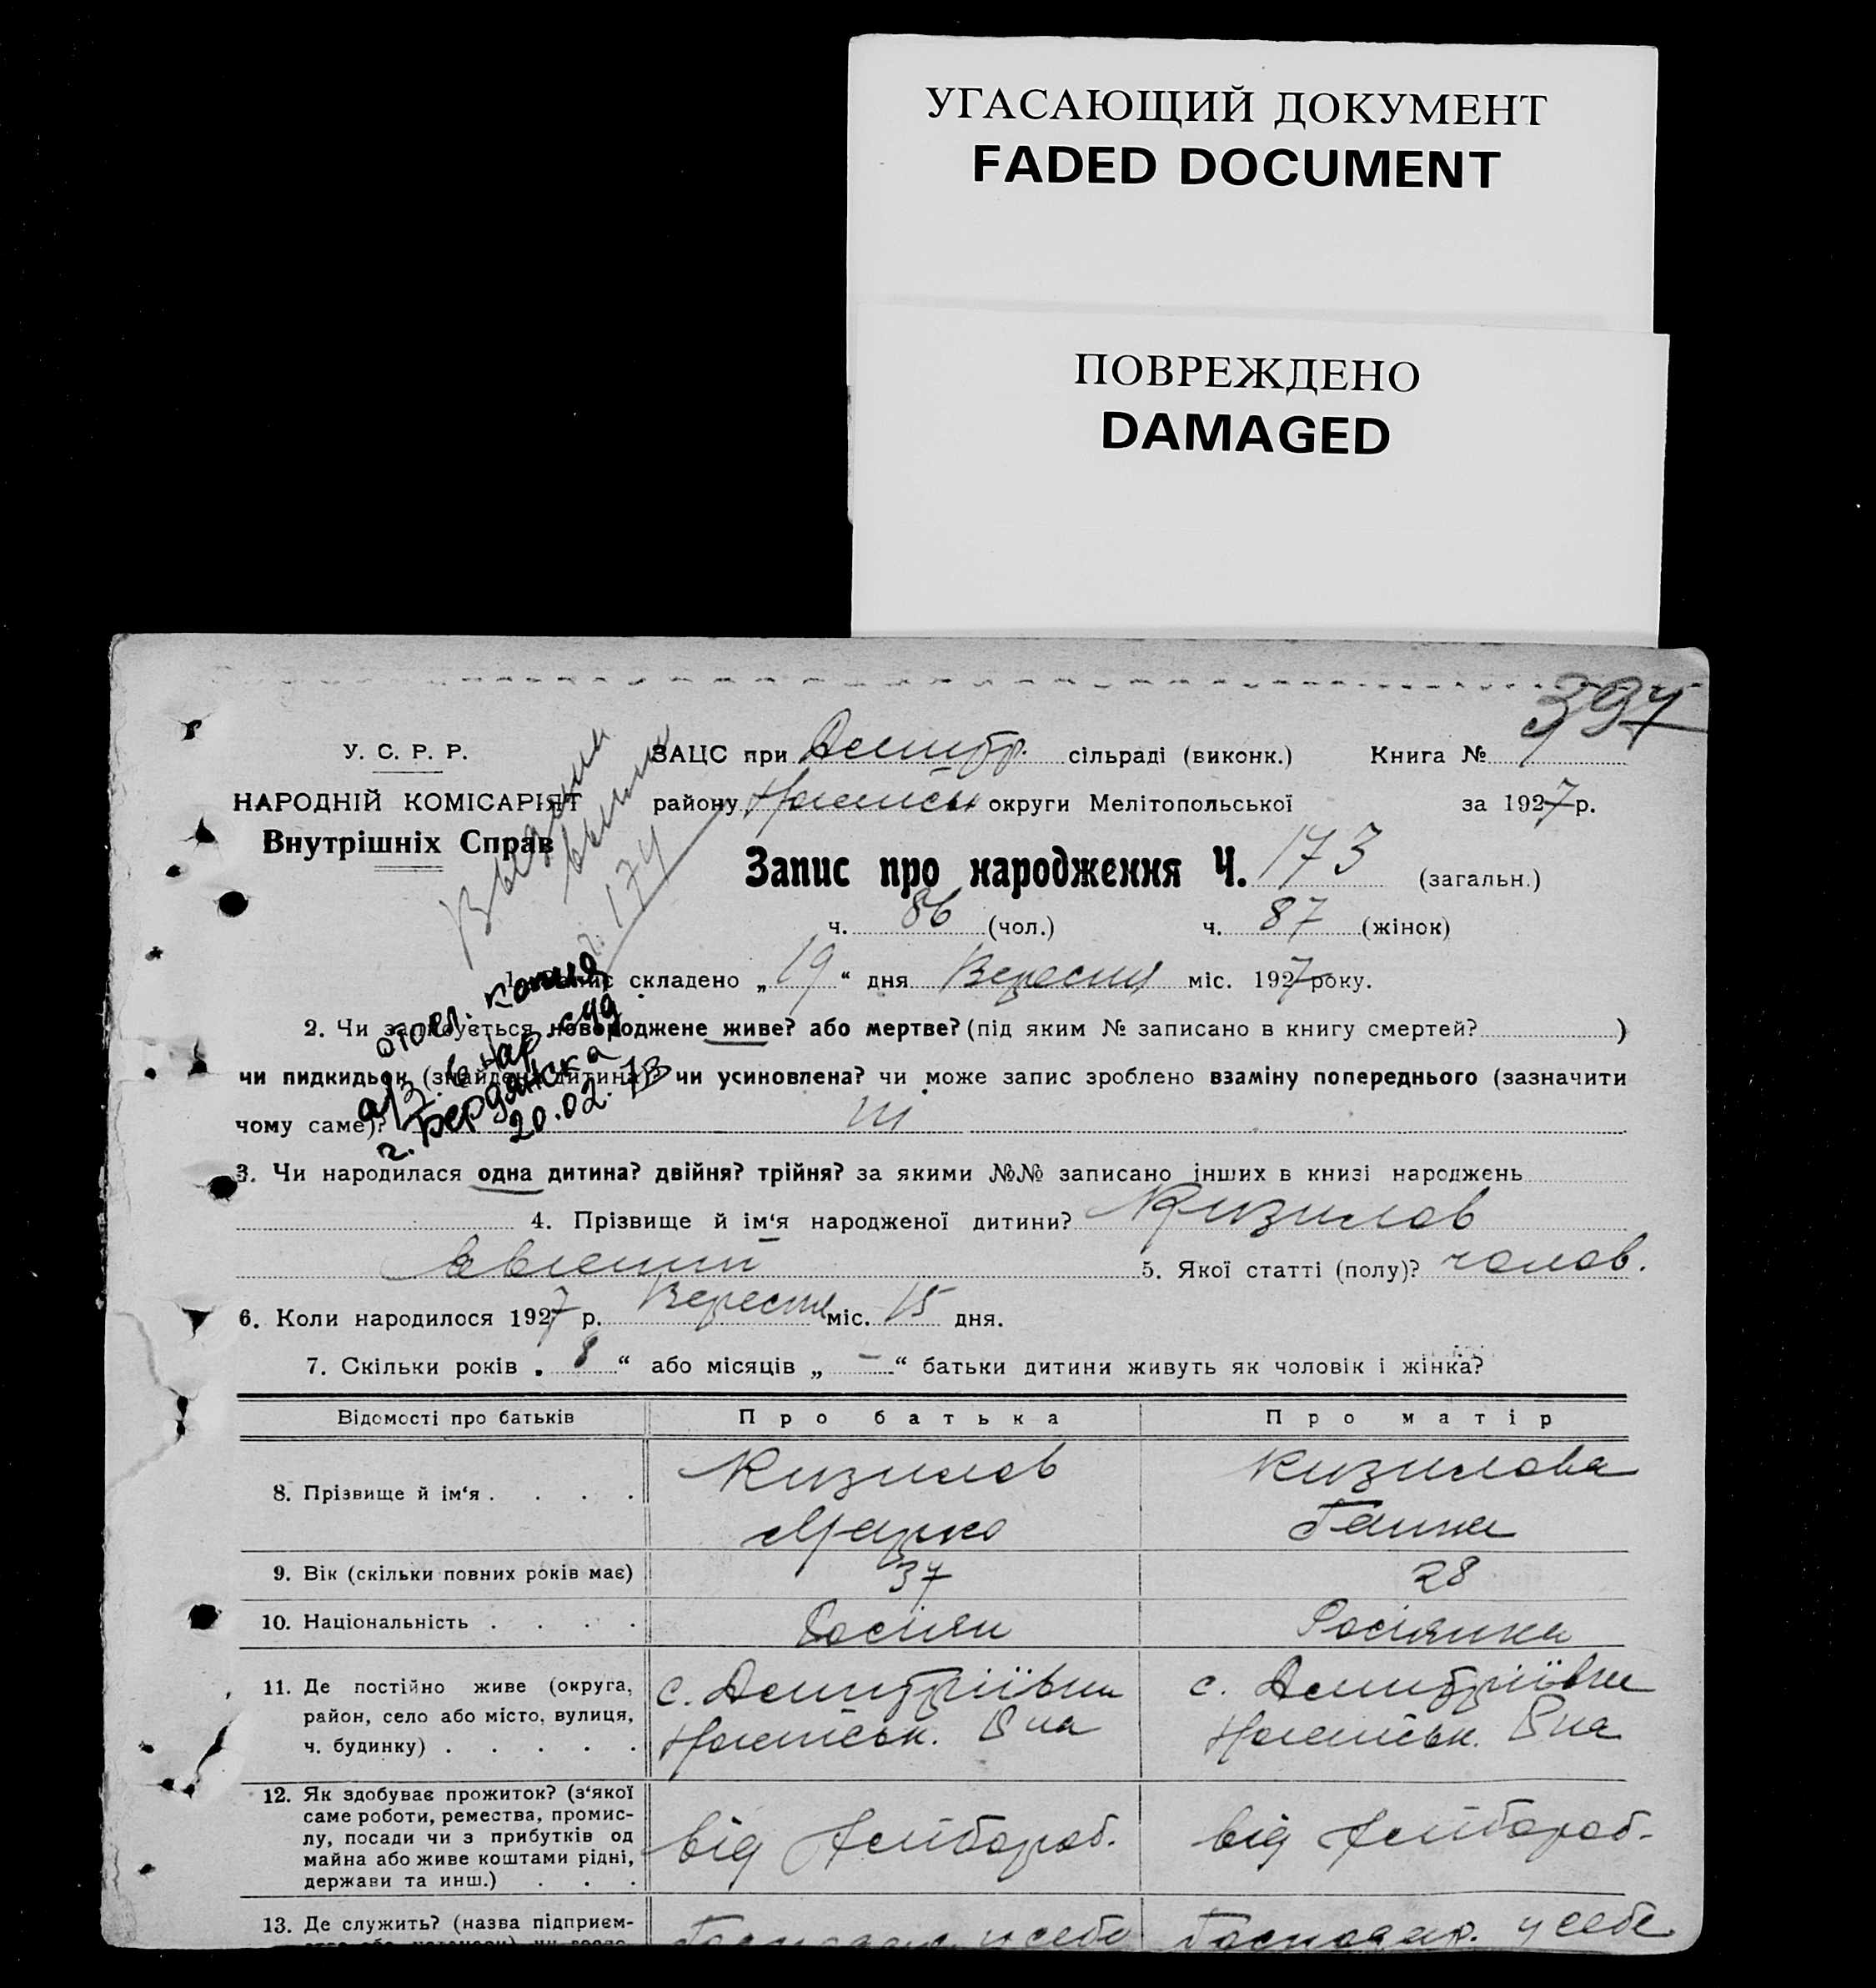 УГАСАЮЩИЙ ДОКУМЕНТ
FADED DOCUMENT
ПОВРЕЖДЕНО
DAMAGED
397
У. С. Р. Р.
НАРОДНІЙ КОМІСАРІЯТ
Внутрішніх Справ
ЗАЦС при Дмитр. сільраді (виконк.) Книга №
району округи Мелітопольської за 1927 р.
Запис про народження Ч. 173 (загальн.)
ч. 86 (чол.) ч. 87 (жінок)
174
1. Запис складено „19“ дня Вересня міс. 1927 року.
отосл. копия
в нар суд
г. Бердянска
20.02.73
2. Чи записується новороджене живе? або мертве? (під яким № записано в книгу смертей? )
чи пидкидьок (знайдена дитина)? чи усиновлена? чи може запис зроблено взаміну попереднього (зазначити
чому саме)? ні
3. Чи народилася одна дитина? двійня? трійня? за якими №№ записано інших в книзі народжень
4. Прізвище й ім‘я народженої дитини? Кизилов
Євгеній 5. Якої статті (полу)? чолов.
6. Коли народилося 1927 р. Вересня міс. 15 дня.
7. Скільки років „ 8 “ або місяців „ – “ батьки дитини живуть як чоловік і жінка?
Відомості про батьків Про батька Про матір
8. Прізвище й ім‘я . . . . Кизилов Кизилова
Марко Ганна
9. Вік (скільки повних років має) 37 28
10. Національність . . . . Росіян Росіянка
11. Де постійно живе (округа, район, село або місто, вулиця, ч. будинку) . . . . .
с. Дмитріївки с. Дмитріївки
Р на Р на
12. Як здобуває прожиток? (з‘якої саме роботи, ремества, промислу, посади чи з прибутків од майна або живе коштами рідні, держави та инш.) . . .
від хлібороб. від хлібороб.
13. Де служить? (назва підприєм-
Господар. у себе Господар. у себе